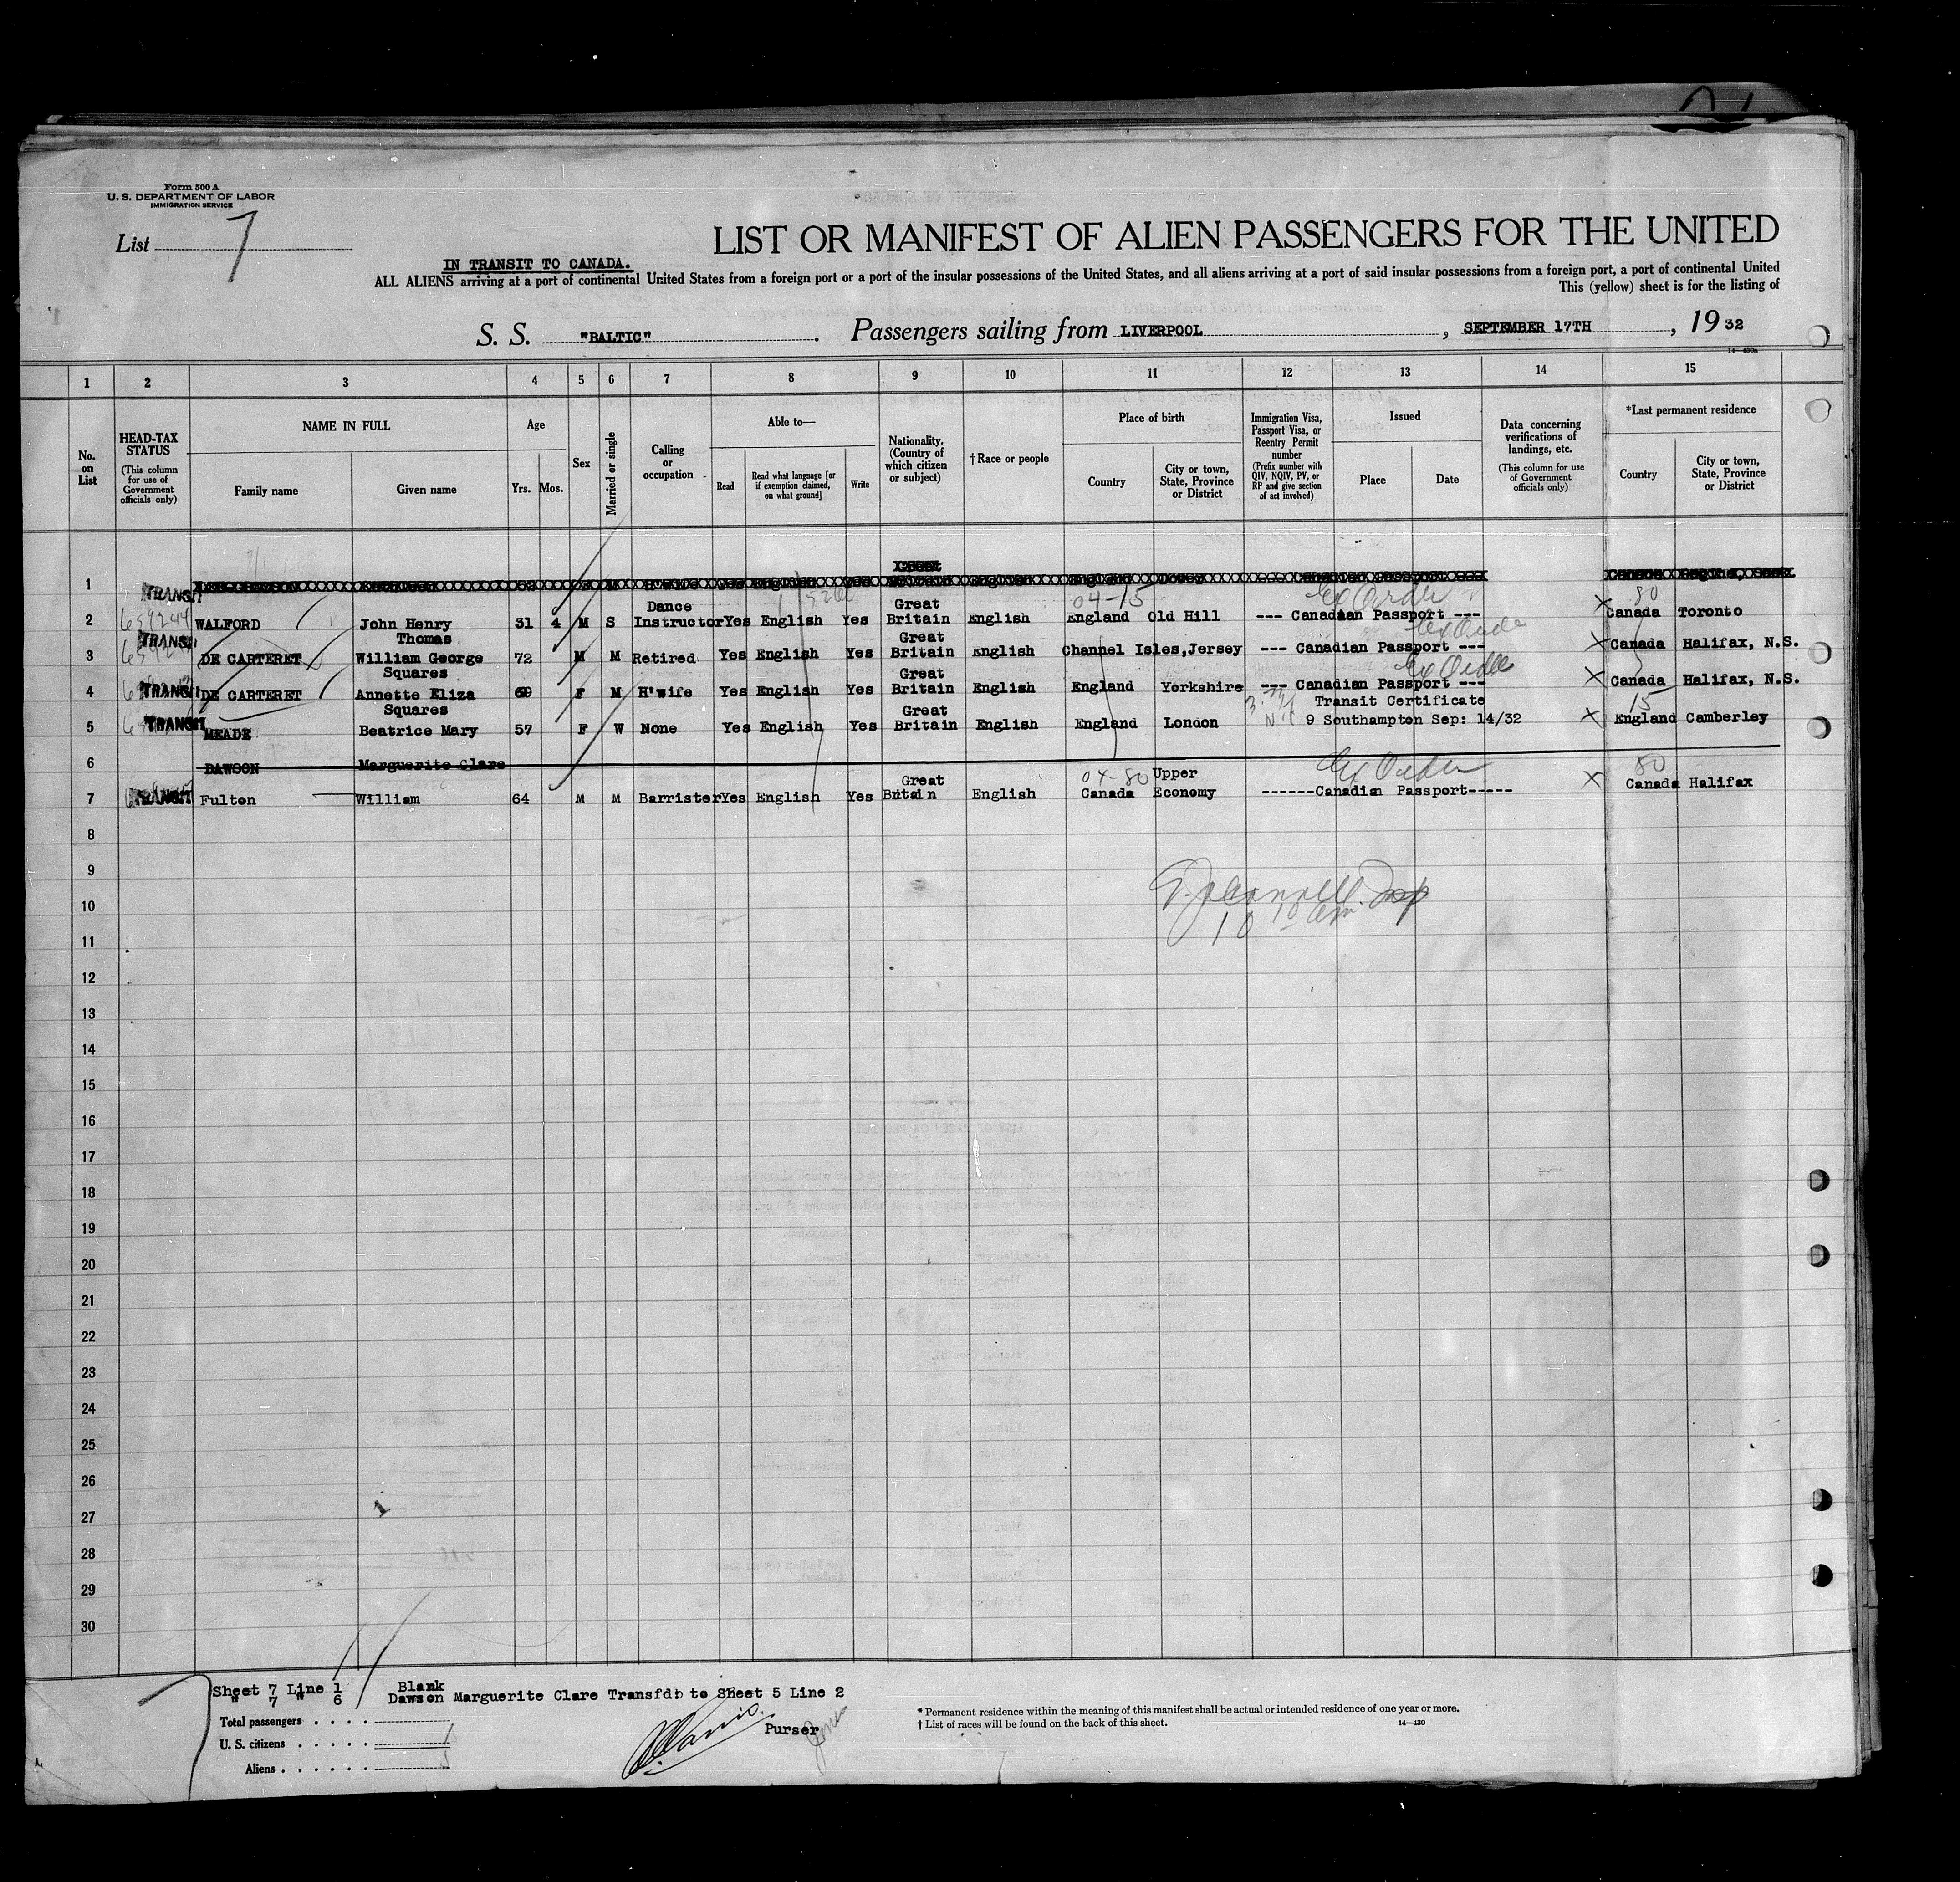 Form 500 A
U. S. DEPARTMENT OF LABOR
IMMIGRATION SERVICE
List 7
LIST OR MANIFEST OF ALIEN PASSENGERS FOR THE UNITED
IN TRANSIT TO CANADA.
ALL ALIENS arriving at a port of continental United States from a foreign port or a port of the insular possessions of the United States, and all aliens arriving at a port of said insular possessions from a foreign port, a port of continental United
This (yellow) sheet is for the listing of
S. S. "BALTIC". Passengers sailing from LIVERPOOL, SEPTEMBER 17TH, 1932
14—430a
1 2 3 4 5 6 7 8 9 10 11 12 13 14 15
No. on List
HEAD-TAX STATUS (This column for use of Government officials only)
NAME IN FULL Family name Given name
Age Yrs. Mos.
Sex
Married or single
Calling or occupation
Able to— Read Read what language [or if exemption claimed, on what ground] Write
Nationality. (Country of which citizen or subject)
†Race or people
Place of birth Country City or town, State, Province or District
Immigration Visa, Passport Visa, or Reentry Permit number (Prefix number with QIV, NQIV, PV, or RP and give section of act involved)
Issued Place Date
Data concerning verifications of landings, etc. (This column for use of Government officials only)
*Last permanent residence Country City or town, State, Province or District
1
2 TRANSIT WALFORD John Henry 31 4 M S Dance Instructor Yes English Yes Great Britain English 04-15 England Old Hill --- Canadian Passport --- X 80 Canada Toronto
3 TRANSIT DE CARTERET Thomas William George 72 M M Retired Yes English Yes Great Britain English Channel Isles, Jersey --- Canadian Passport --- X Canada Halifax, N.S.
4 TRANSIT DE CARTERET Squares Annette Eliza 69 F M H'wife Yes English Yes Great Britain English England Yorkshire --- Canadian Passport --- X Canada Halifax, N.S.
5 TRANSIT MEADE Squares Beatrice Mary 57 F W None Yes English Yes Great Britain English England London Transit Certificate 9 Southampton Sep: 14/32 X 15 England Camberley
6 DAWSON Marguerite Clare
7 TRANSIT Fulton William 64 M M Barrister Yes English Yes Great Britain English 04-80 Canada Upper Economy ------Canadian Passport----- X 80 Canada Halifax
8
9
10
11
12
13
14
15
16
17
18
19
20
21
22
23
24
25
26
27
28
29
30
Sheet 7 Line 1 Blank
" 7 " 6 Dawson Marguerite Clare Transfd: to Sheet 5 Line 2
Total passengers . . . .
U. S. citizens . . . . .
Aliens . . . . . .
Purser
* Permanent residence within the meaning of this manifest shall be actual or intended residence of one year or more.
† List of races will be found on the back of this sheet.
14—430